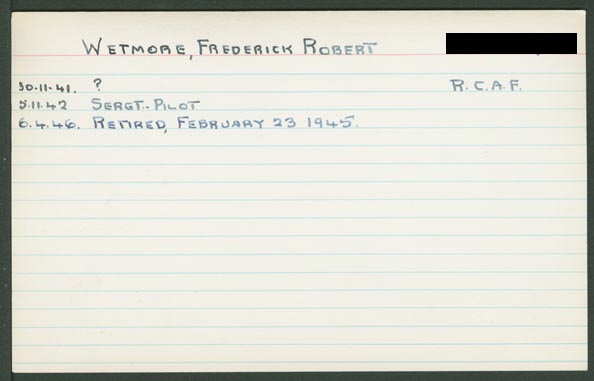 WETMORE, FREDERICK ROBERT
30.11.41. ? R.C.A.F.
5.11.42 SERGT.-PILOT
6.4.46. RETIRED, FEBRUARY 23 1945.